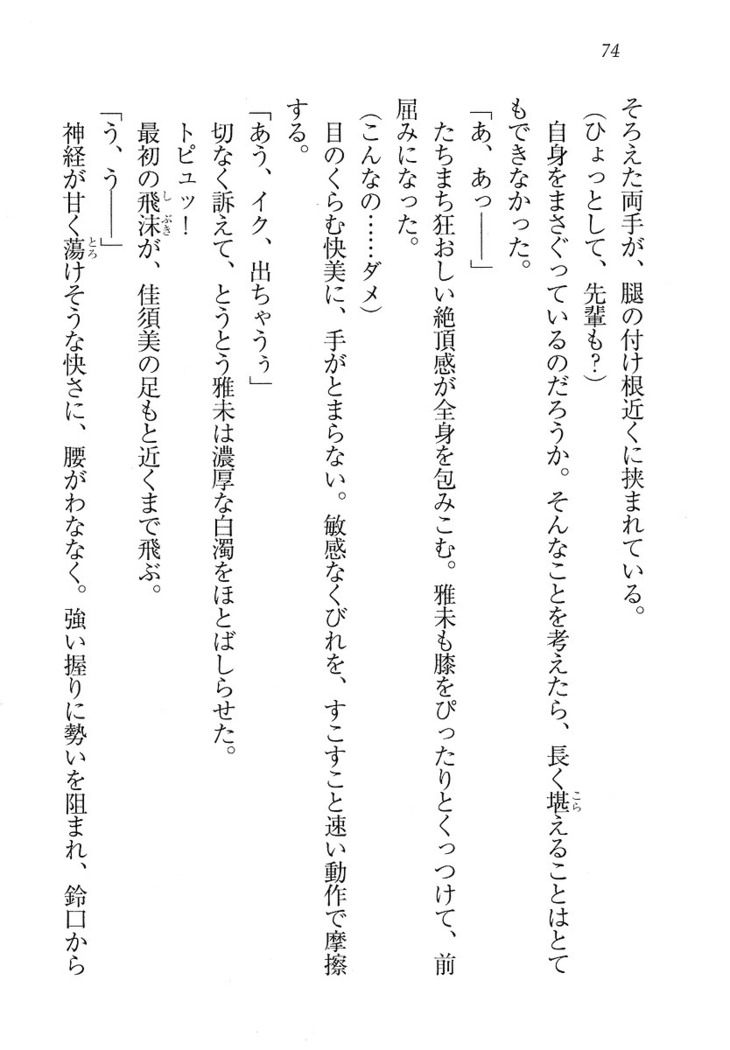 74
そろえた両手が、腿の付け根近くに挟まれている。
(ひょっとして、先輩も?)
自身をまさぐっているのだろうか。そんなことを考えたら、長く堪えることはとて
もできなかった。
「あ、あっ――」
たちまち狂おしい絶頂感が全身を包みこむ。雅未も膝をぴったりとくっつけて、前
屈みになった。
(こんなの……ダメ)
目のくらむ快美に、手がとまらない。敏感なくびれを、すこすこと速い動作で摩擦
する。
「あう、イク、出ちゃうぅ」
切なく訴えて、とうとう雅未は濃厚な白濁をほとばしらせた。
トピュッ!
最初の飛沫が、佳須美の足もと近くまで飛ぶ。
「う、う――」
神経が甘く蕩けそうな快さに、腰がわななく。強い握りに勢いを阻まれ、鈴口から